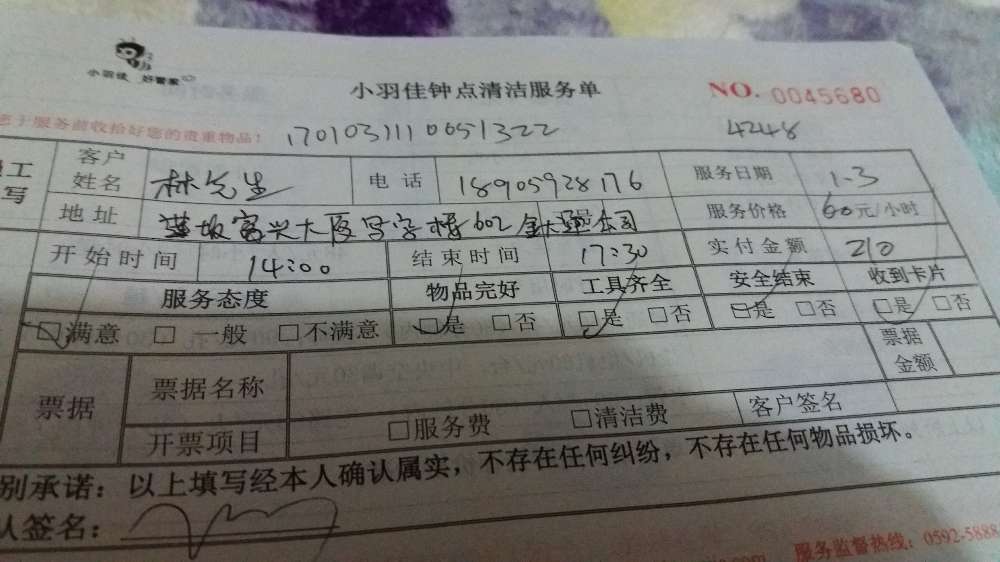 小羽佳 好管家
小羽佳钟点清洁服务单 NO. 0045680
于服务前收拾好您的贵重物品! 1701031110051322 4248
工 客户姓名 林先生 电话 18905928176 服务日期 1.3
写 地址 莲坂富兴大厦写字楼602 公司 服务价格 60元/小时
开始时间 14:00 结束时间 17:30 实付金额 210
服务态度 物品完好 工具齐全 安全结束 收到卡片
□满意 □一般 □不满意 □是 □否 □是 □否 □是 □否 □是 □否
票据 票据名称 票据金额
开票项目 □服务费 □清洁费 客户签名
别承诺：以上填写经本人确认属实，不存在任何纠纷，不存在任何物品损坏。
人签名：
服务监督热线：0592-5888